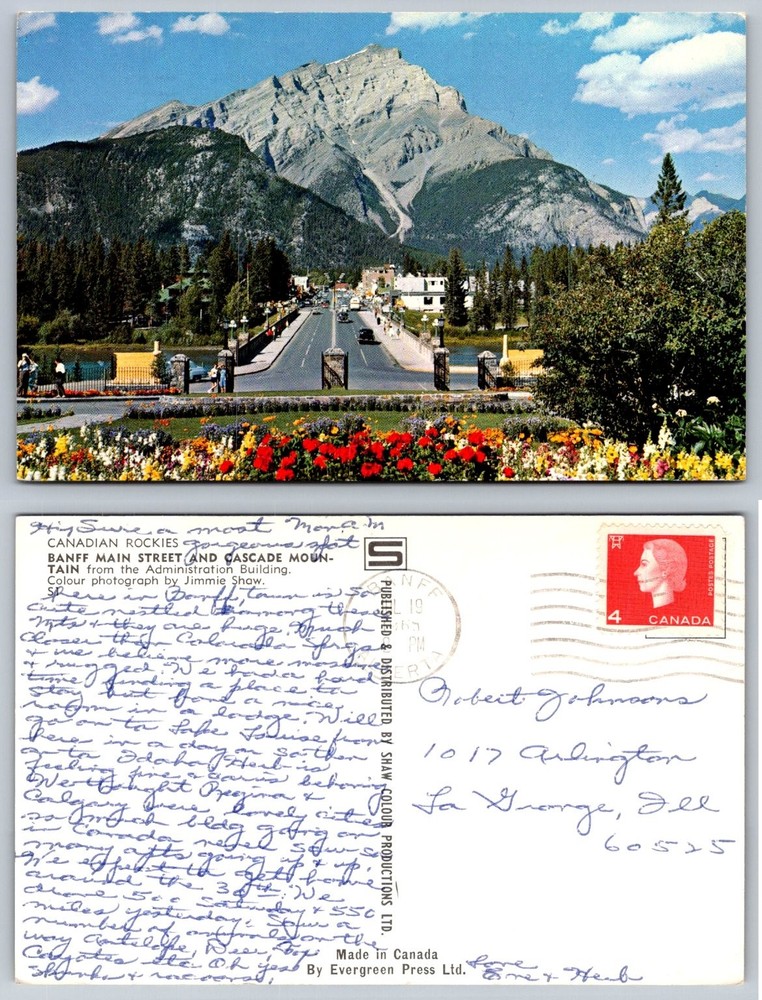 Hi, Sure a most Mon. A.M
CANADIAN ROCKIES gorgeous spot
BANFF MAIN STREET AND CASCADE MOUN-
TAIN from the Administration Building.
Colour photograph by Jimmie Shaw.
here in Banff, town is so
cute nestled among these
Mts & they are huge. Much
closer than Colorado Sprgs
& we believe more massive
& rugged. We had a hard
time finding a place to
stay but found a nice
room in a lodge. Will
go on to Lake Louise from
here in a day or so then
onto Idaho. Herb is
feeling fine & car is behaving
Went thought Regina &
Calgary were lovely cities
so much bldg going on
in Canada never saw so
many apts going up & up.
We expect to get home
around the 30th. We
drove 500 Saturday & 550
miles yesterday. Saw a
number of animals on the
way Antelope, Deer, Fox
Coyotes etc. Oh yes
skunks & racoons,
S
PUBLISHED & DISTRIBUTED BY SHAW COLOUR PRODUCTIONS LTD.
BANFF
19
PM
POSTES POSTAGE
4 CANADA
Robert Johnsons
1017 Arlington
La Grange, Ill
60525
Made in Canada
By Evergreen Press Ltd.
Love
& Herb